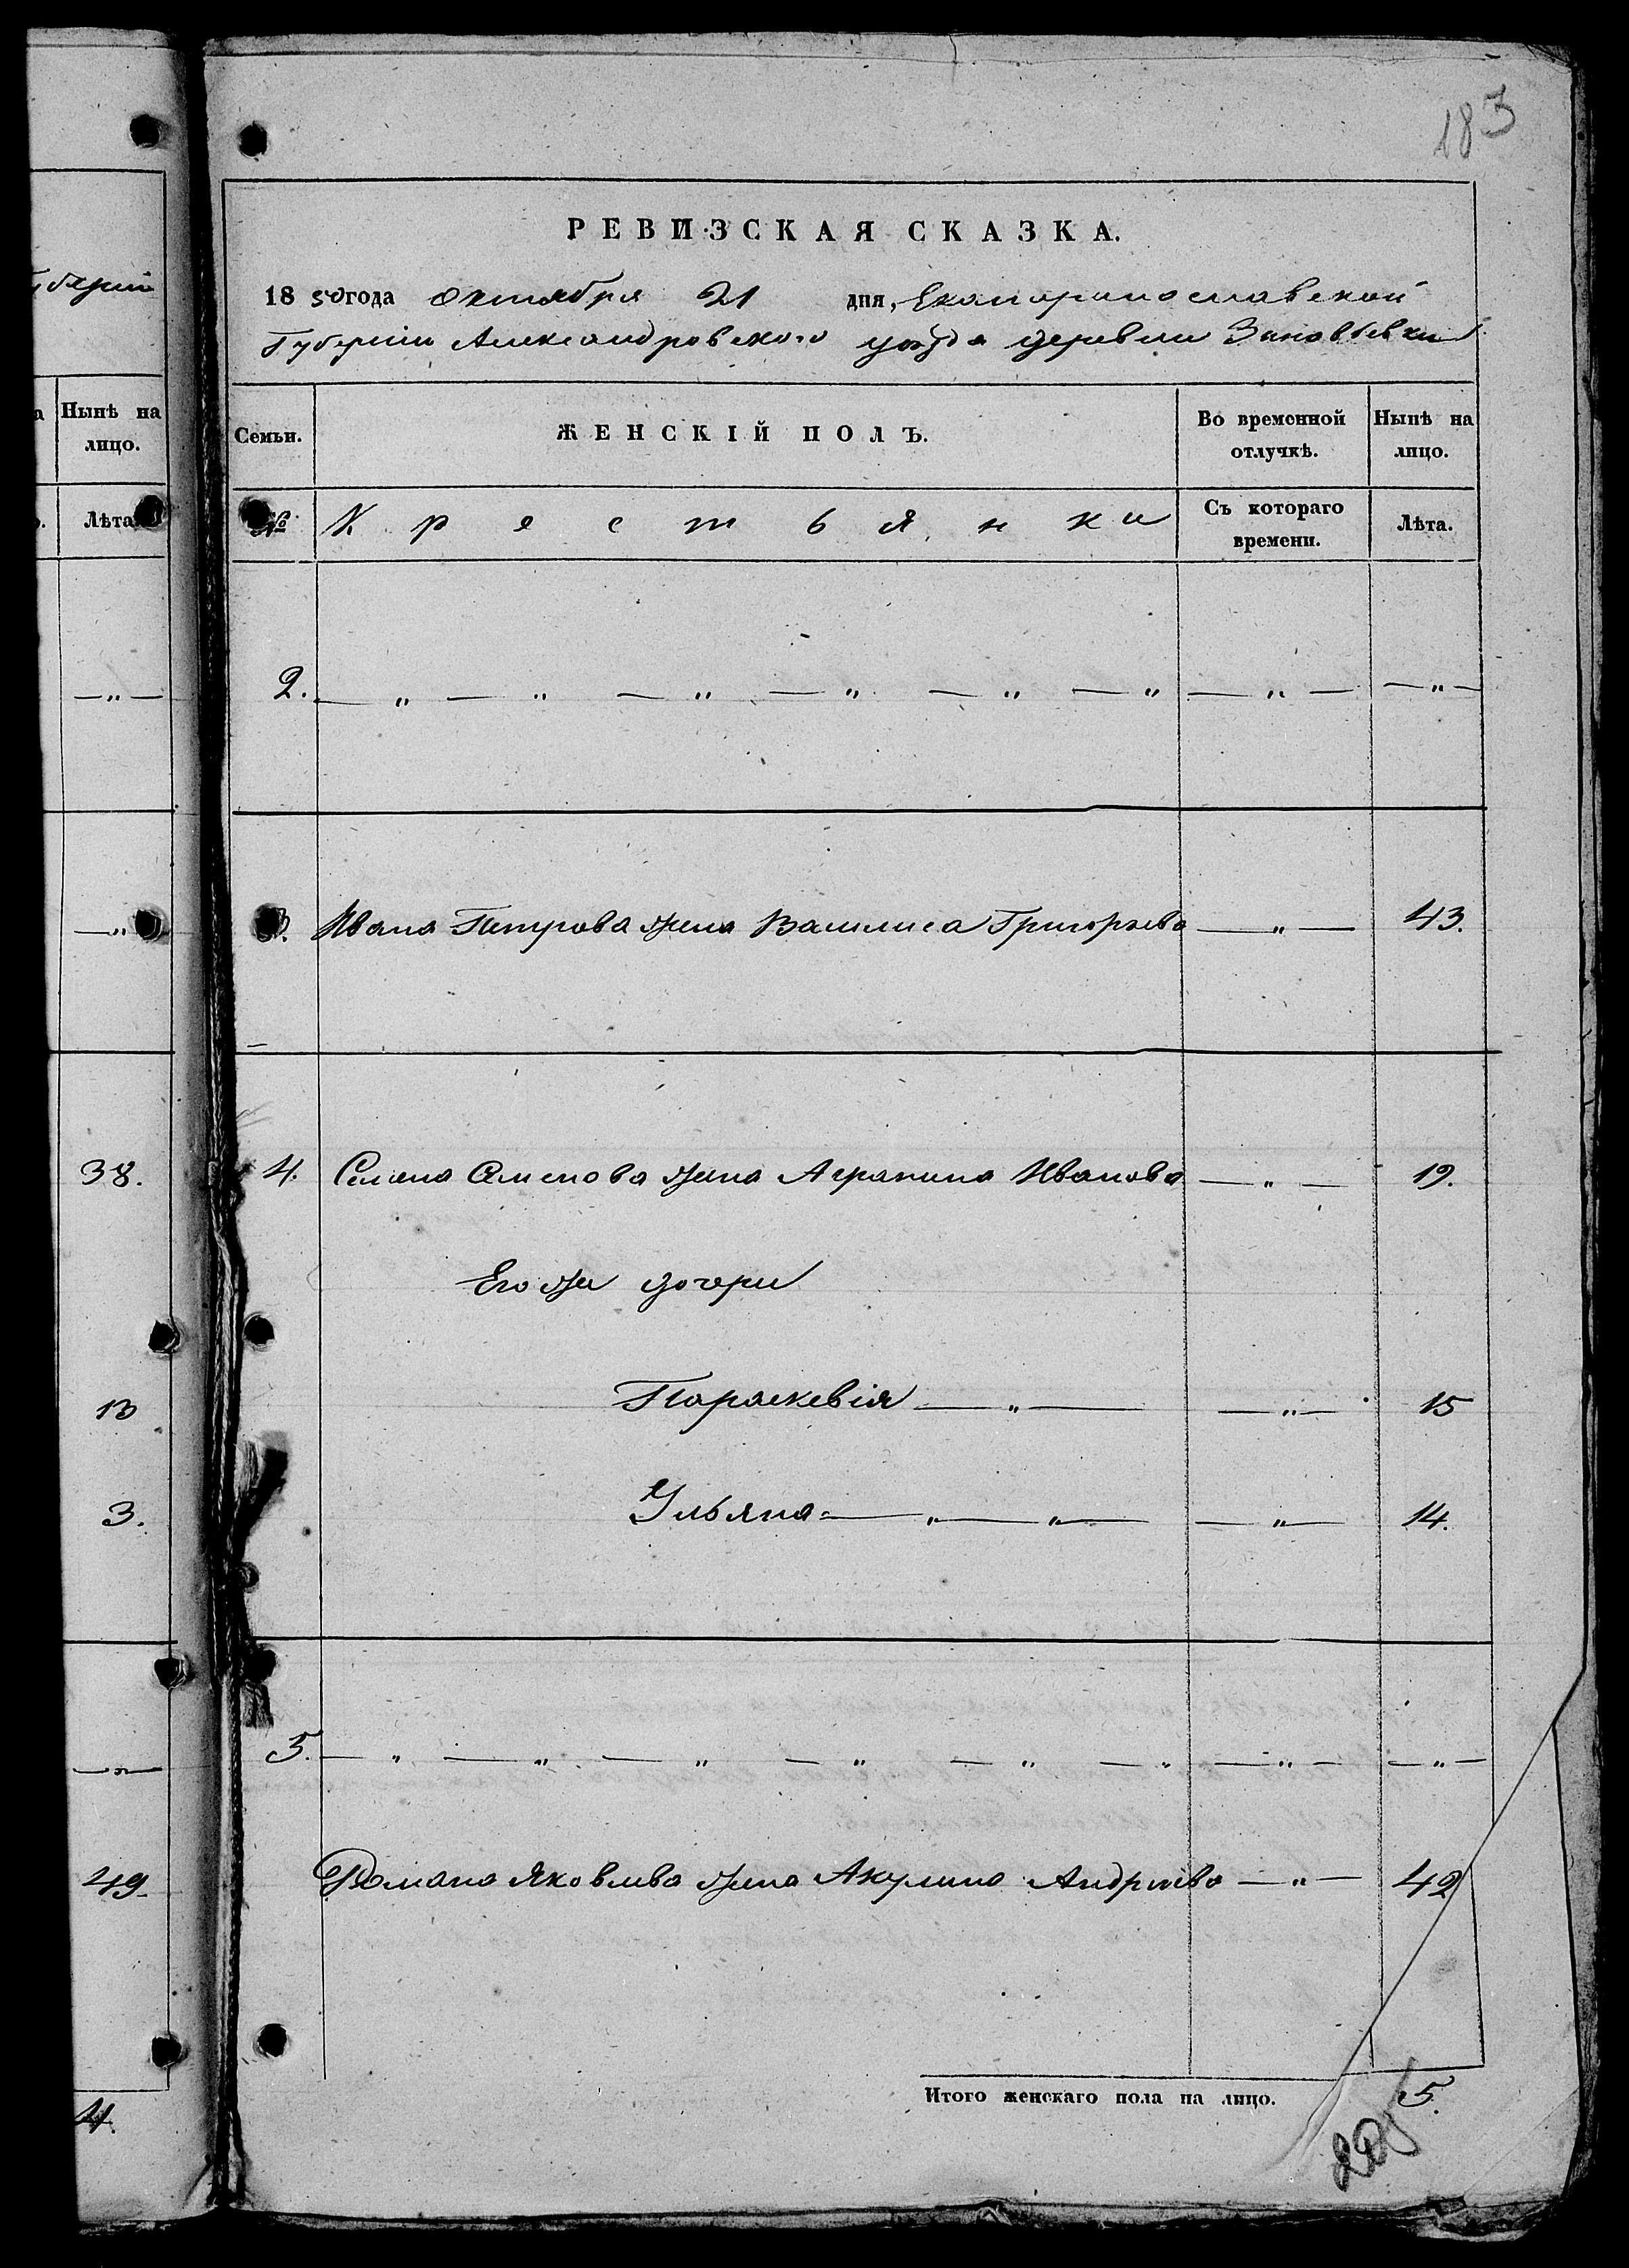 183
РЕВИЗСКАЯ СКАЗКА.
1850 года Октября 21 дня, Екатеринославской
Губернiи Александровского уѣзда деревни Зиновьевки
губернiи
Нынѣ на лицо.
Лѣта
38.
13
3.
49.
4.
Семьи. ЖЕНСКІЙ ПОЛЪ. Во временной отлучкѣ. Нынѣ на лицо.
№ Крестьянки Съ котораго времени. Лѣта.
2. — „ — „ — „ — „ — „ — „ — „ — — „ —
3. Ивана Петрова жена Василиса Григорьева — „ — 43.
4. Семена жена Аграпина Иванова — „ — 19.
Его же дочери
Параскевiя — „ — — „ — 15
Ульяна — „ — „ — — „ — 14.
5. — „ — „ — „ — „ — „ — „ — „ — — „ —
Романа Яковлева жена Акулина Андрѣева — „ — 42
Итого женскаго пола на лицо. 5.